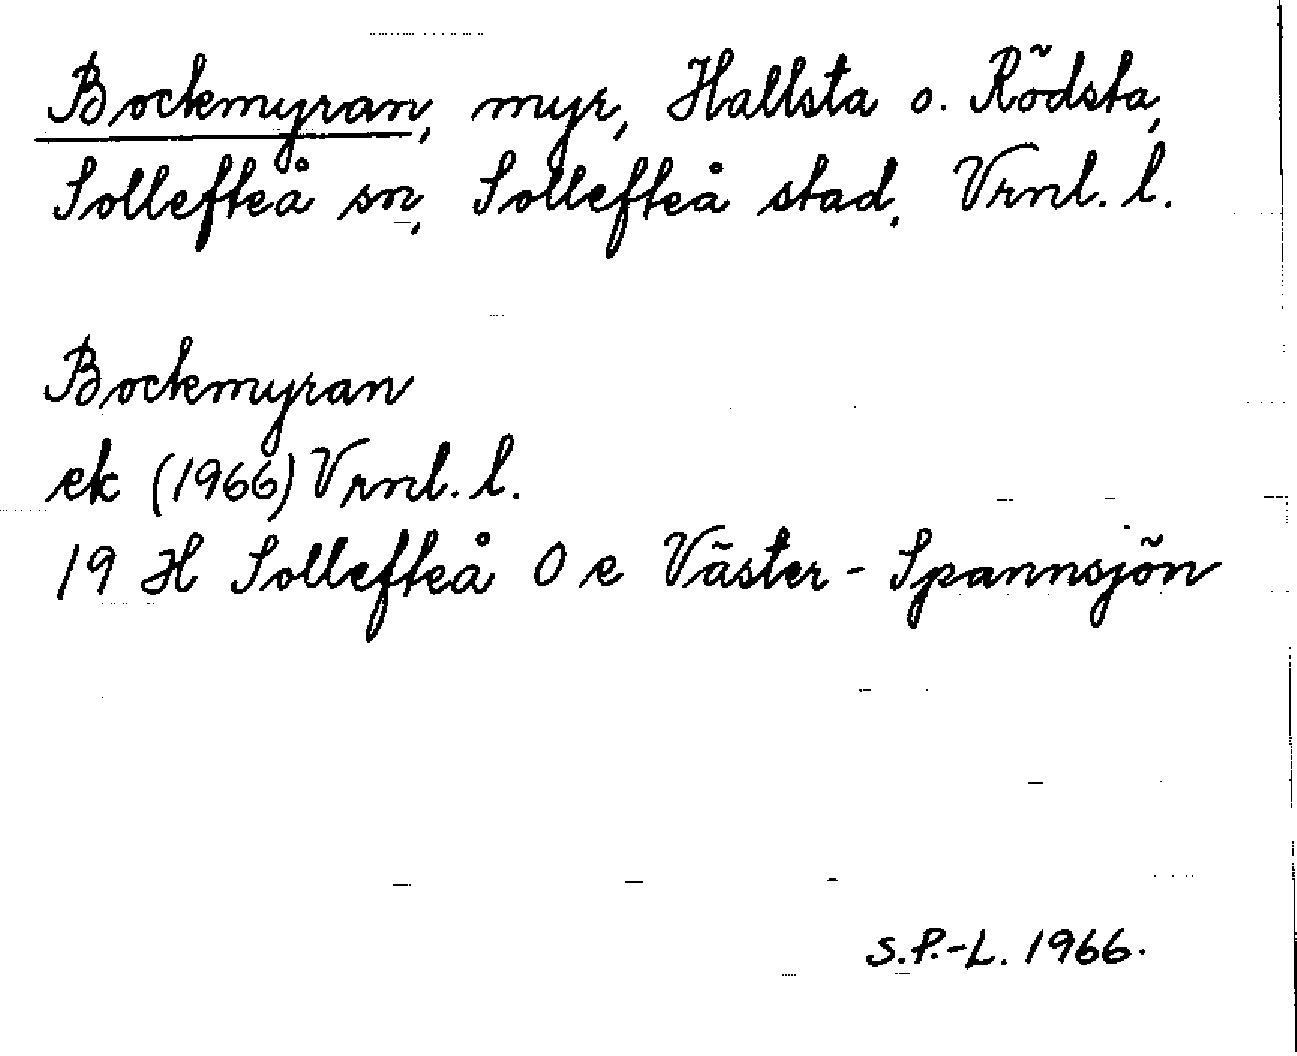 Bockmyran, myr, Hallsta o. Rödsta,
Sollefteå sn, Sollefteå stad, Vrnl. l.
Bockmyran
ek (1966) Vrnl. l.
19 H Sollefteå O e Väster-Spannsjön
S.P.-L. 1966.